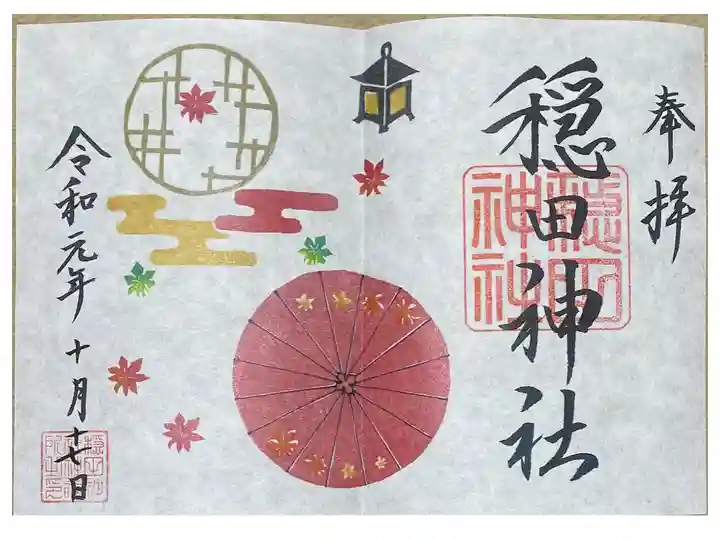 奉拝
穏田神社
穏田
神社
令和元年 十月十七日